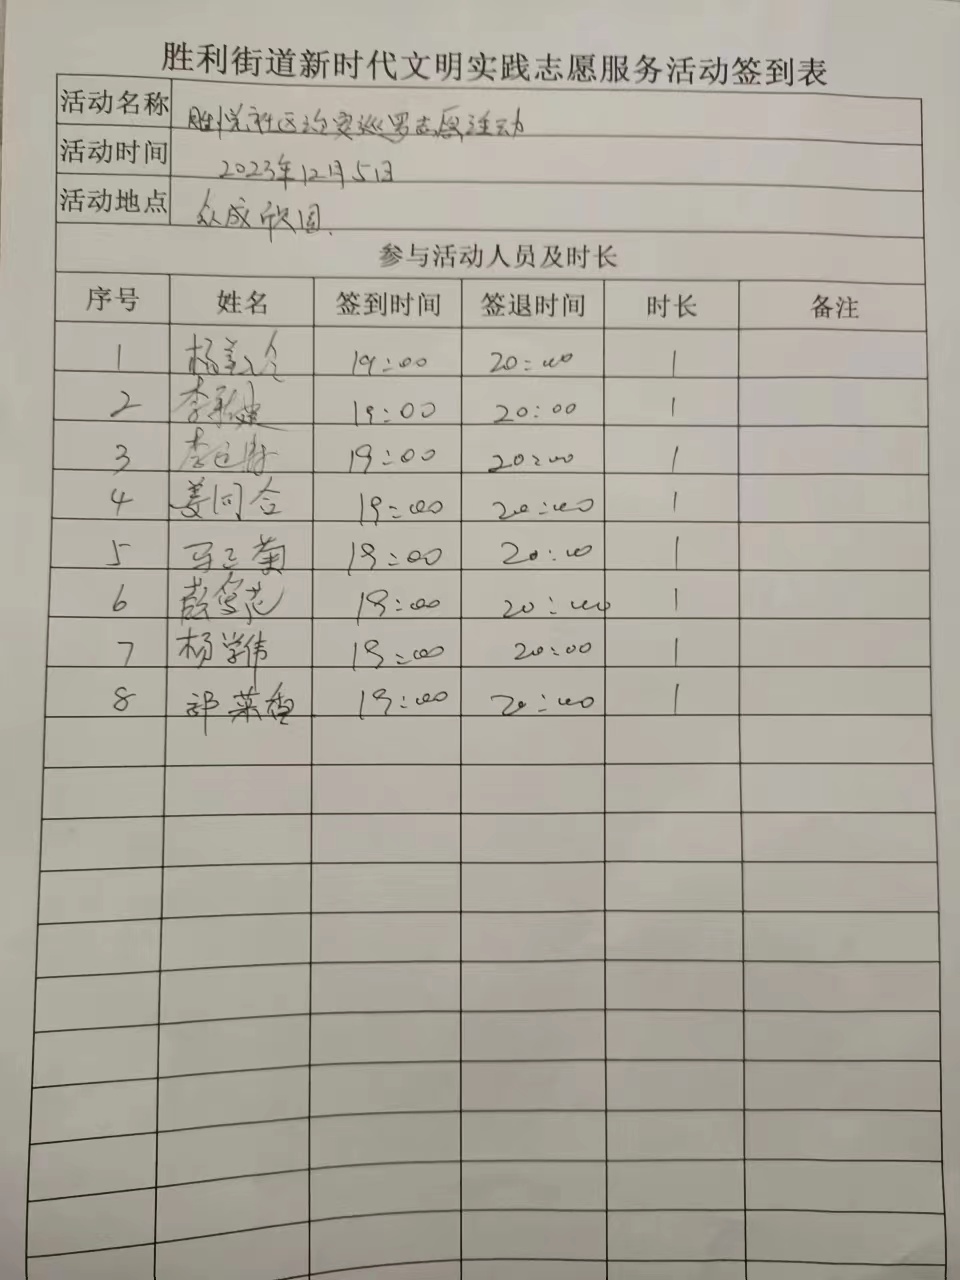 胜利街道新时代文明实践志愿服务活动签到表
活动名称 胜悦社区治安巡逻志愿活动
活动时间 2023年12月5日
活动地点 众成欣园.
参与活动人员及时长
序号 姓名 签到时间 签退时间 时长 备注
1 19:00 20:00 1
2 19:00 20:00 1
3 19:00 20:00 1
4 姜同合 19:00 20:00 1
5 19:00 20:00 1
6 19:00 20:00 1
7 杨学伟 19:00 20:00 1
8 祁菜香 19:00 20:00 1